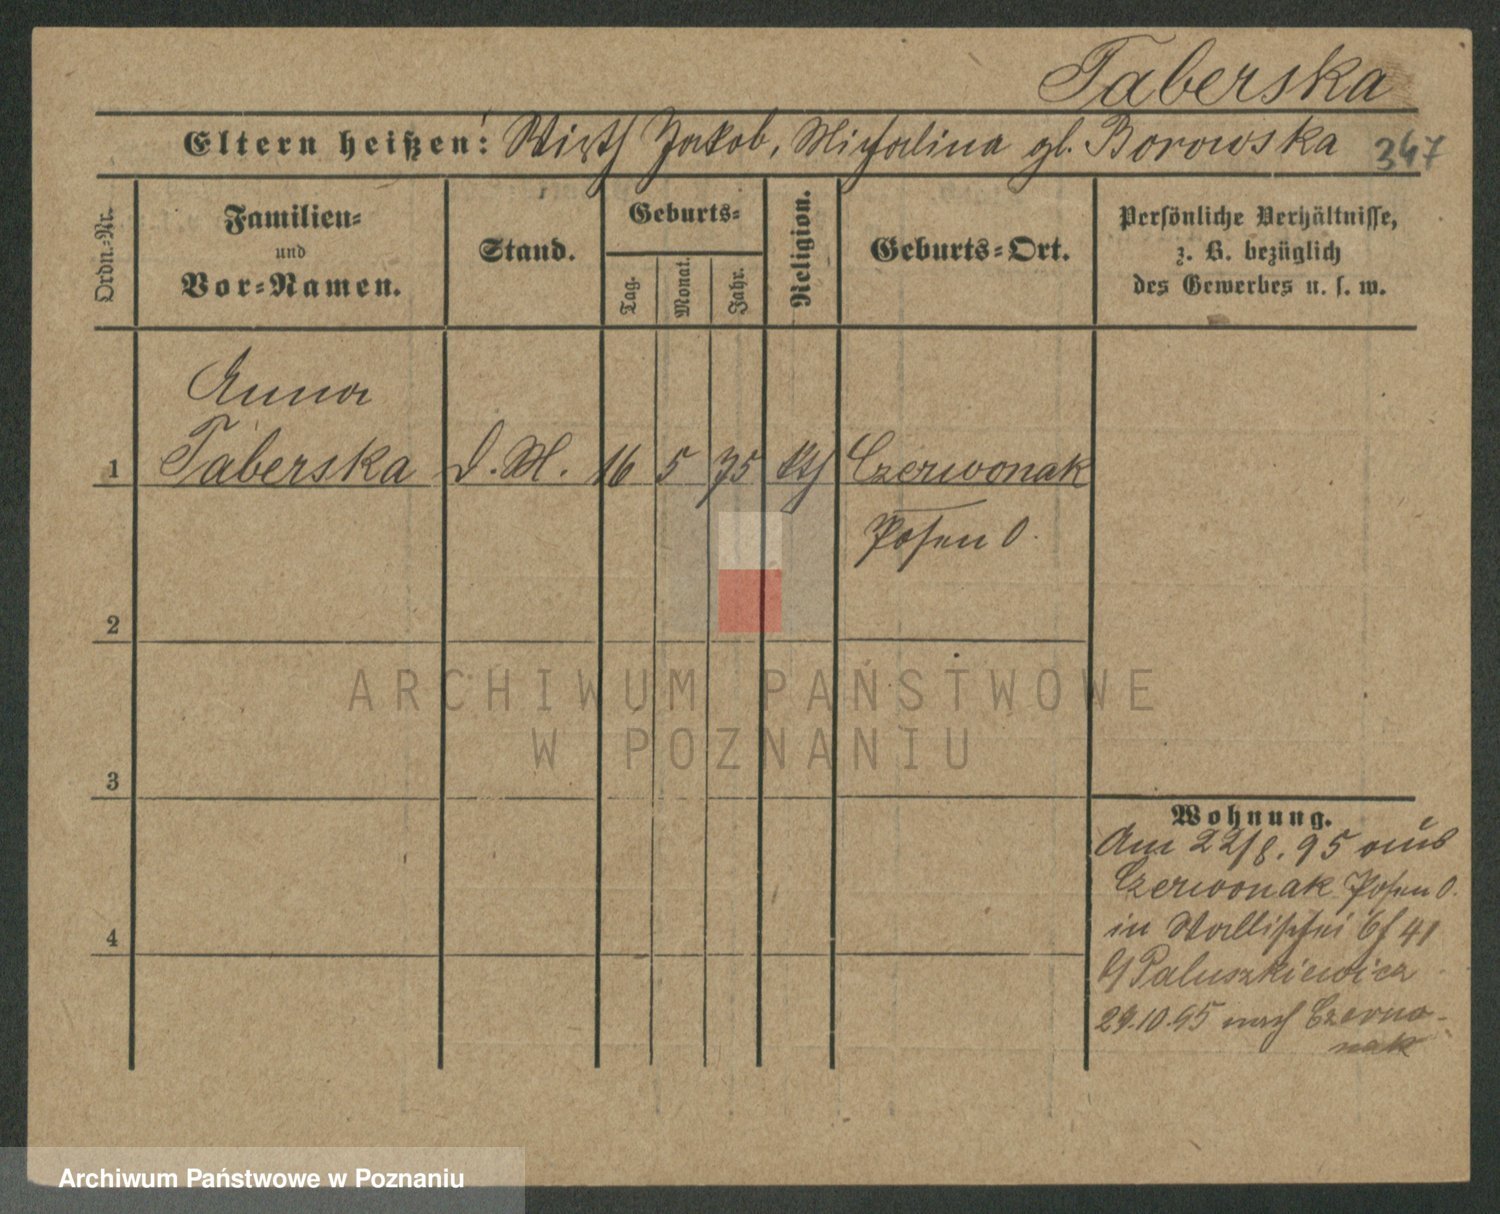 Taberska
Eltern heißen: Wirth Jakob, Michalina gb. Borowska 347
Ordn.-Nr.
Familien-
und
Vor-Namen.
Stand.
Geburts-
Tag.
Monat.
Jahr.
Religion.
Geburts-Ort.
Persönliche Verhältnisse,
z. B. bezüglich
des Gewerbes u. s. w.
Anna
1 Taberska D. M. 16 5 75 kth Czerwonak
Posen O.
2
3
4
Wohnung.
Am 22/8. 95 aus
Czerwonak Posen O.
in Wallischei 41
b/ Paluszkiewicz
29.10.95 nach Czerwo-
nak
ARCHIWUM PAŃSTWOWE
W POZNANIU
Archiwum Państwowe w Poznaniu